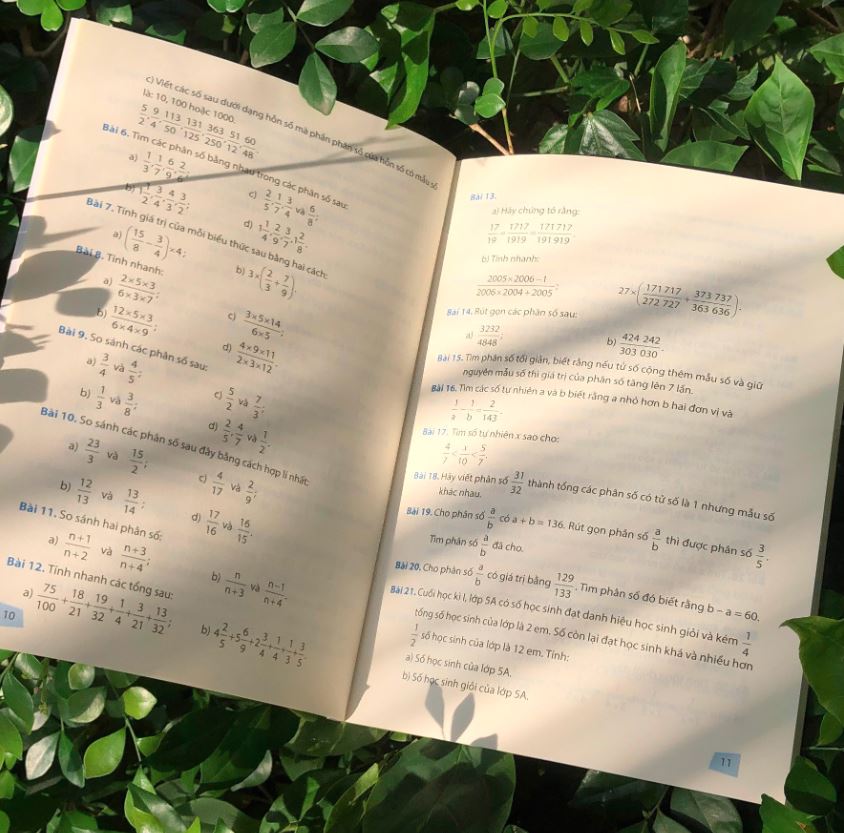 c) Viết các số sau dưới dạng hỗn số mà phần phân số của hỗn số có mẫu số
là: 10, 100 hoặc 1000.
5/2; 9/4; 113/50; 131/125; 363/250; 51/12; 60/48.
Bài 6. Tìm các phân số bằng nhau trong các phân số sau:
a) 1/3; 1/7; 6/9; 2/6;
c) 2/5; 1/7; 3/4 và 6/8;
b) 1 1/2; 3/4; 4/3; 3/2;
d) 1 1/4; 2/9; 3/7; 1 2/8.
Bài 7. Tính giá trị của mỗi biểu thức sau bằng hai cách:
a) (15/8 − 3/4) × 4;
b) 3 × (2/3 + 7/9).
Bài 8. Tính nhanh:
a) 2×5×3/6×3×7;
c) 3×5×14/6×5;
b) 12×5×3/6×4×9;
d) 4×9×11/2×3×12.
Bài 9. So sánh các phân số sau:
a) 3/4 và 4/5;
c) 5/2 và 7/3;
b) 1/3 và 3/8;
d) 2/5; 4/7 và 1/2.
Bài 10. So sánh các phân số sau đây bằng cách hợp lí nhất:
a) 23/3 và 15/2;
c) 4/17 và 2/9;
b) 12/13 và 13/14;
d) 17/16 và 16/15.
Bài 11. So sánh hai phân số:
a) n+1/n+2 và n+3/n+4;
b) n/n+3 và n−1/n+4.
Bài 12. Tính nhanh các tổng sau:
a) 75/100 + 18/21 + 19/32 + 1/4 + 3/21 + 13/32;
b) 4 2/5 + 5 6/9 + 2 3/4 + 1/4 + 1/3 + 3/5.
10
Bài 13.
a) Hãy chứng tỏ rằng:
17/19 = 1717/1919 = 171 717/191 919.
b) Tính nhanh:
2005×2006−1/2006×2004+2005;
27 × (171 717/272 727 + 373 737/363 636).
Bài 14. Rút gọn các phân số sau:
a) 3232/4848;
b) 424 242/303 030.
Bài 15. Tìm phân số tối giản, biết rằng nếu tử số cộng thêm mẫu số và giữ
nguyên mẫu số thì giá trị của phân số tăng lên 7 lần.
Bài 16. Tìm các số tự nhiên a và b biết rằng a nhỏ hơn b hai đơn vị và
1/a − 1/b = 2/143.
Bài 17. Tìm số tự nhiên x sao cho:
4/7 < x/10 < 5/7.
Bài 18. Hãy viết phân số 31/32 thành tổng các phân số có tử số là 1 nhưng mẫu số
khác nhau.
Bài 19. Cho phân số a/b có a + b = 136. Rút gọn phân số a/b thì được phân số 3/5.
Tìm phân số a/b đã cho.
Bài 20. Cho phân số a/b có giá trị bằng 129/133. Tìm phân số đó biết rằng b − a = 60.
Bài 21. Cuối học kì I, lớp 5A có số học sinh đạt danh hiệu học sinh giỏi và kém 1/4
tổng số học sinh của lớp là 2 em. Số còn lại đạt học sinh khá và nhiều hơn
1/2 số học sinh của lớp là 12 em. Tính:
a) Số học sinh của lớp 5A.
b) Số học sinh giỏi của lớp 5A.
11